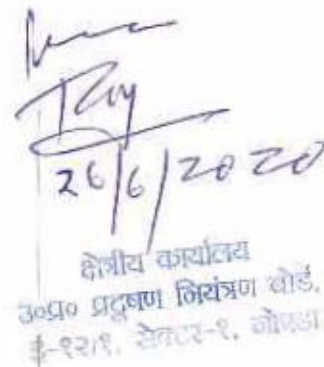 26/6/2020
क्षेत्रीय कार्यालय
उ०प्र० प्रदूषण नियंत्रण बोर्ड,
ई-१२/१, सेक्टर-१, नोएडा